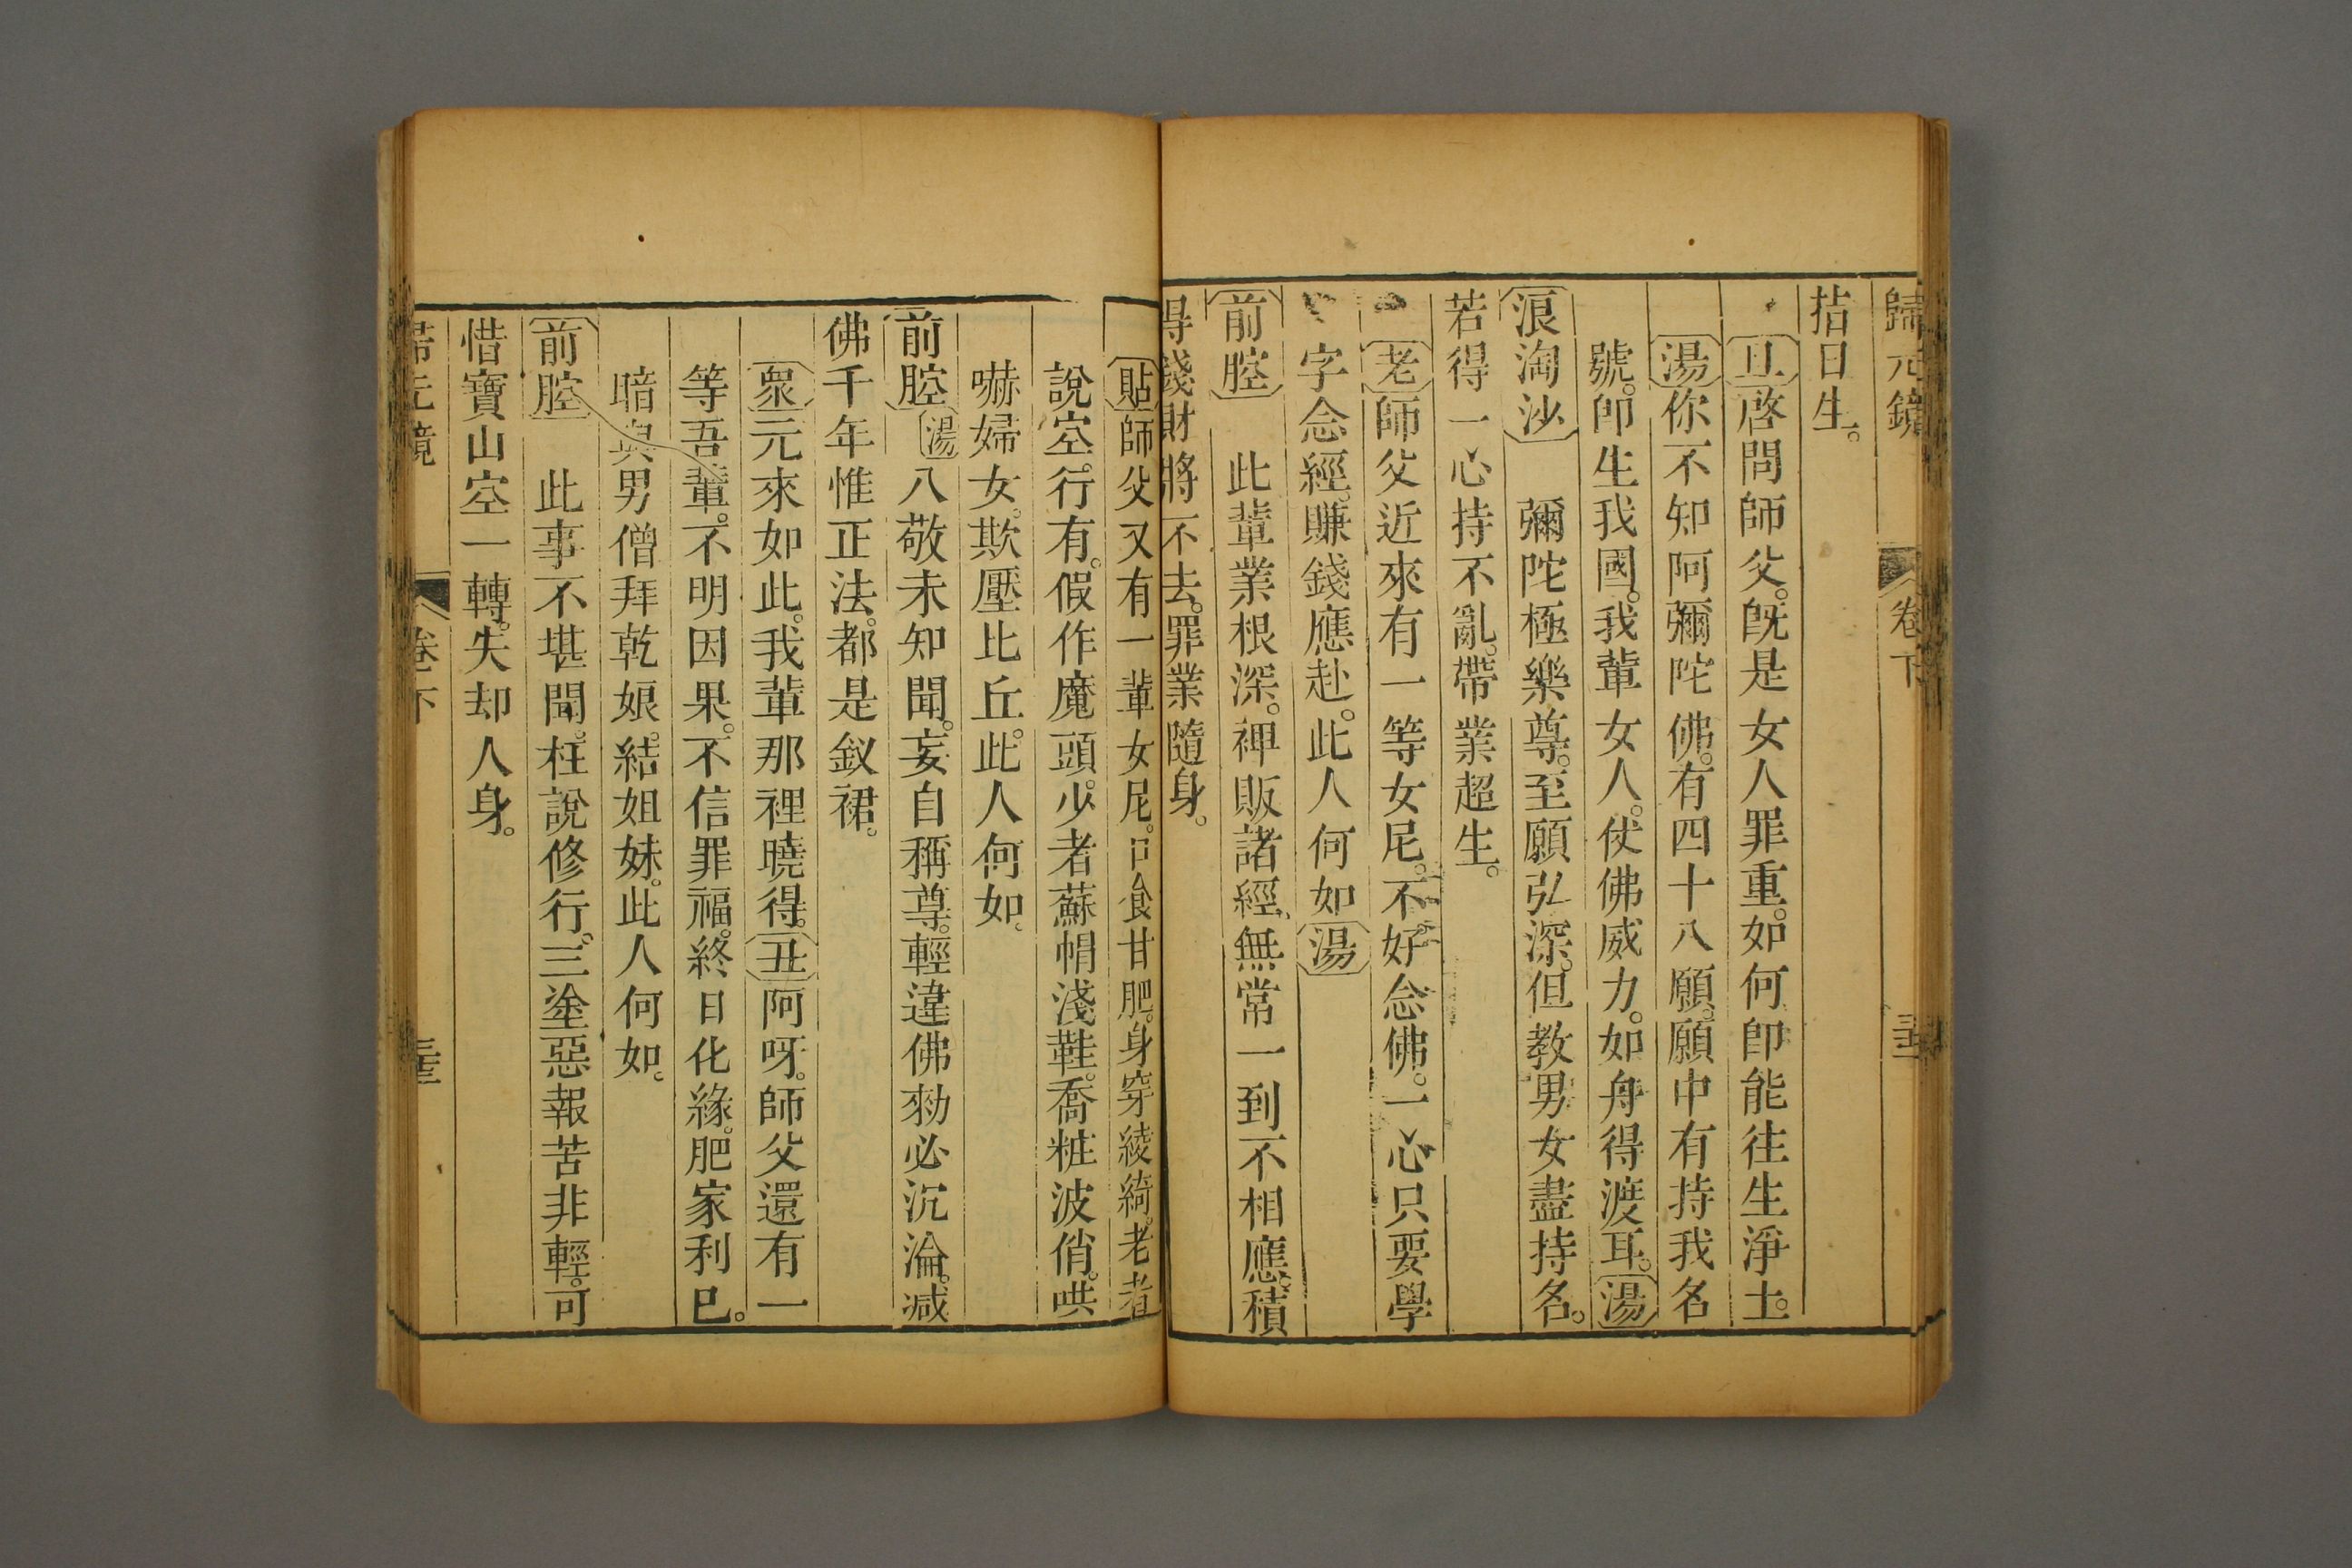 歸元鏡 卷下
㧞日生。
丑啓問師父。旣是女人罪重。如何卽能往生淨土。
湯你不知阿彌陀佛。有四十八願。願中有持我名
號。卽生我國。我輩女人。仗佛威力。如舟得渡耳。湯
浪淘沙 彌陀極樂尊。至願弘深。但教男女盡持名。
若得一心持不亂。帶業超生。
老師父近來有一等女尼。不好念佛。一心只要學
字念經。賺錢應赴。此人何如湯
前腔 此輩業根深。裨販諸經。無常一到不相應。積
得錢財將不去。罪業隨身。
貼師父又有一輩女尼。口食甘肥。身穿綾綺。老者
說空。行有。假作魔頭。少者蘇帽淺鞋。喬粧波俏。哄
嚇婦女。欺壓比丘。此人何如。
前腔湯八敬未知聞。妄自稱尊。輕違佛勑必沉淪。减
佛千年惟正法。都是釵裙。
衆元來如此。我輩那裡曉得。丑阿呀。師父還有一
等吾輩。不明因果。不信罪福。終日化緣。肥家利已。
暗與男僧拜乾娘。結姐妹。此人何如。
前腔 此事不堪聞。枉說修行。三塗惡報苦非輕。可
惜寶山空一轉。失却人身。
歸元鏡 卷下